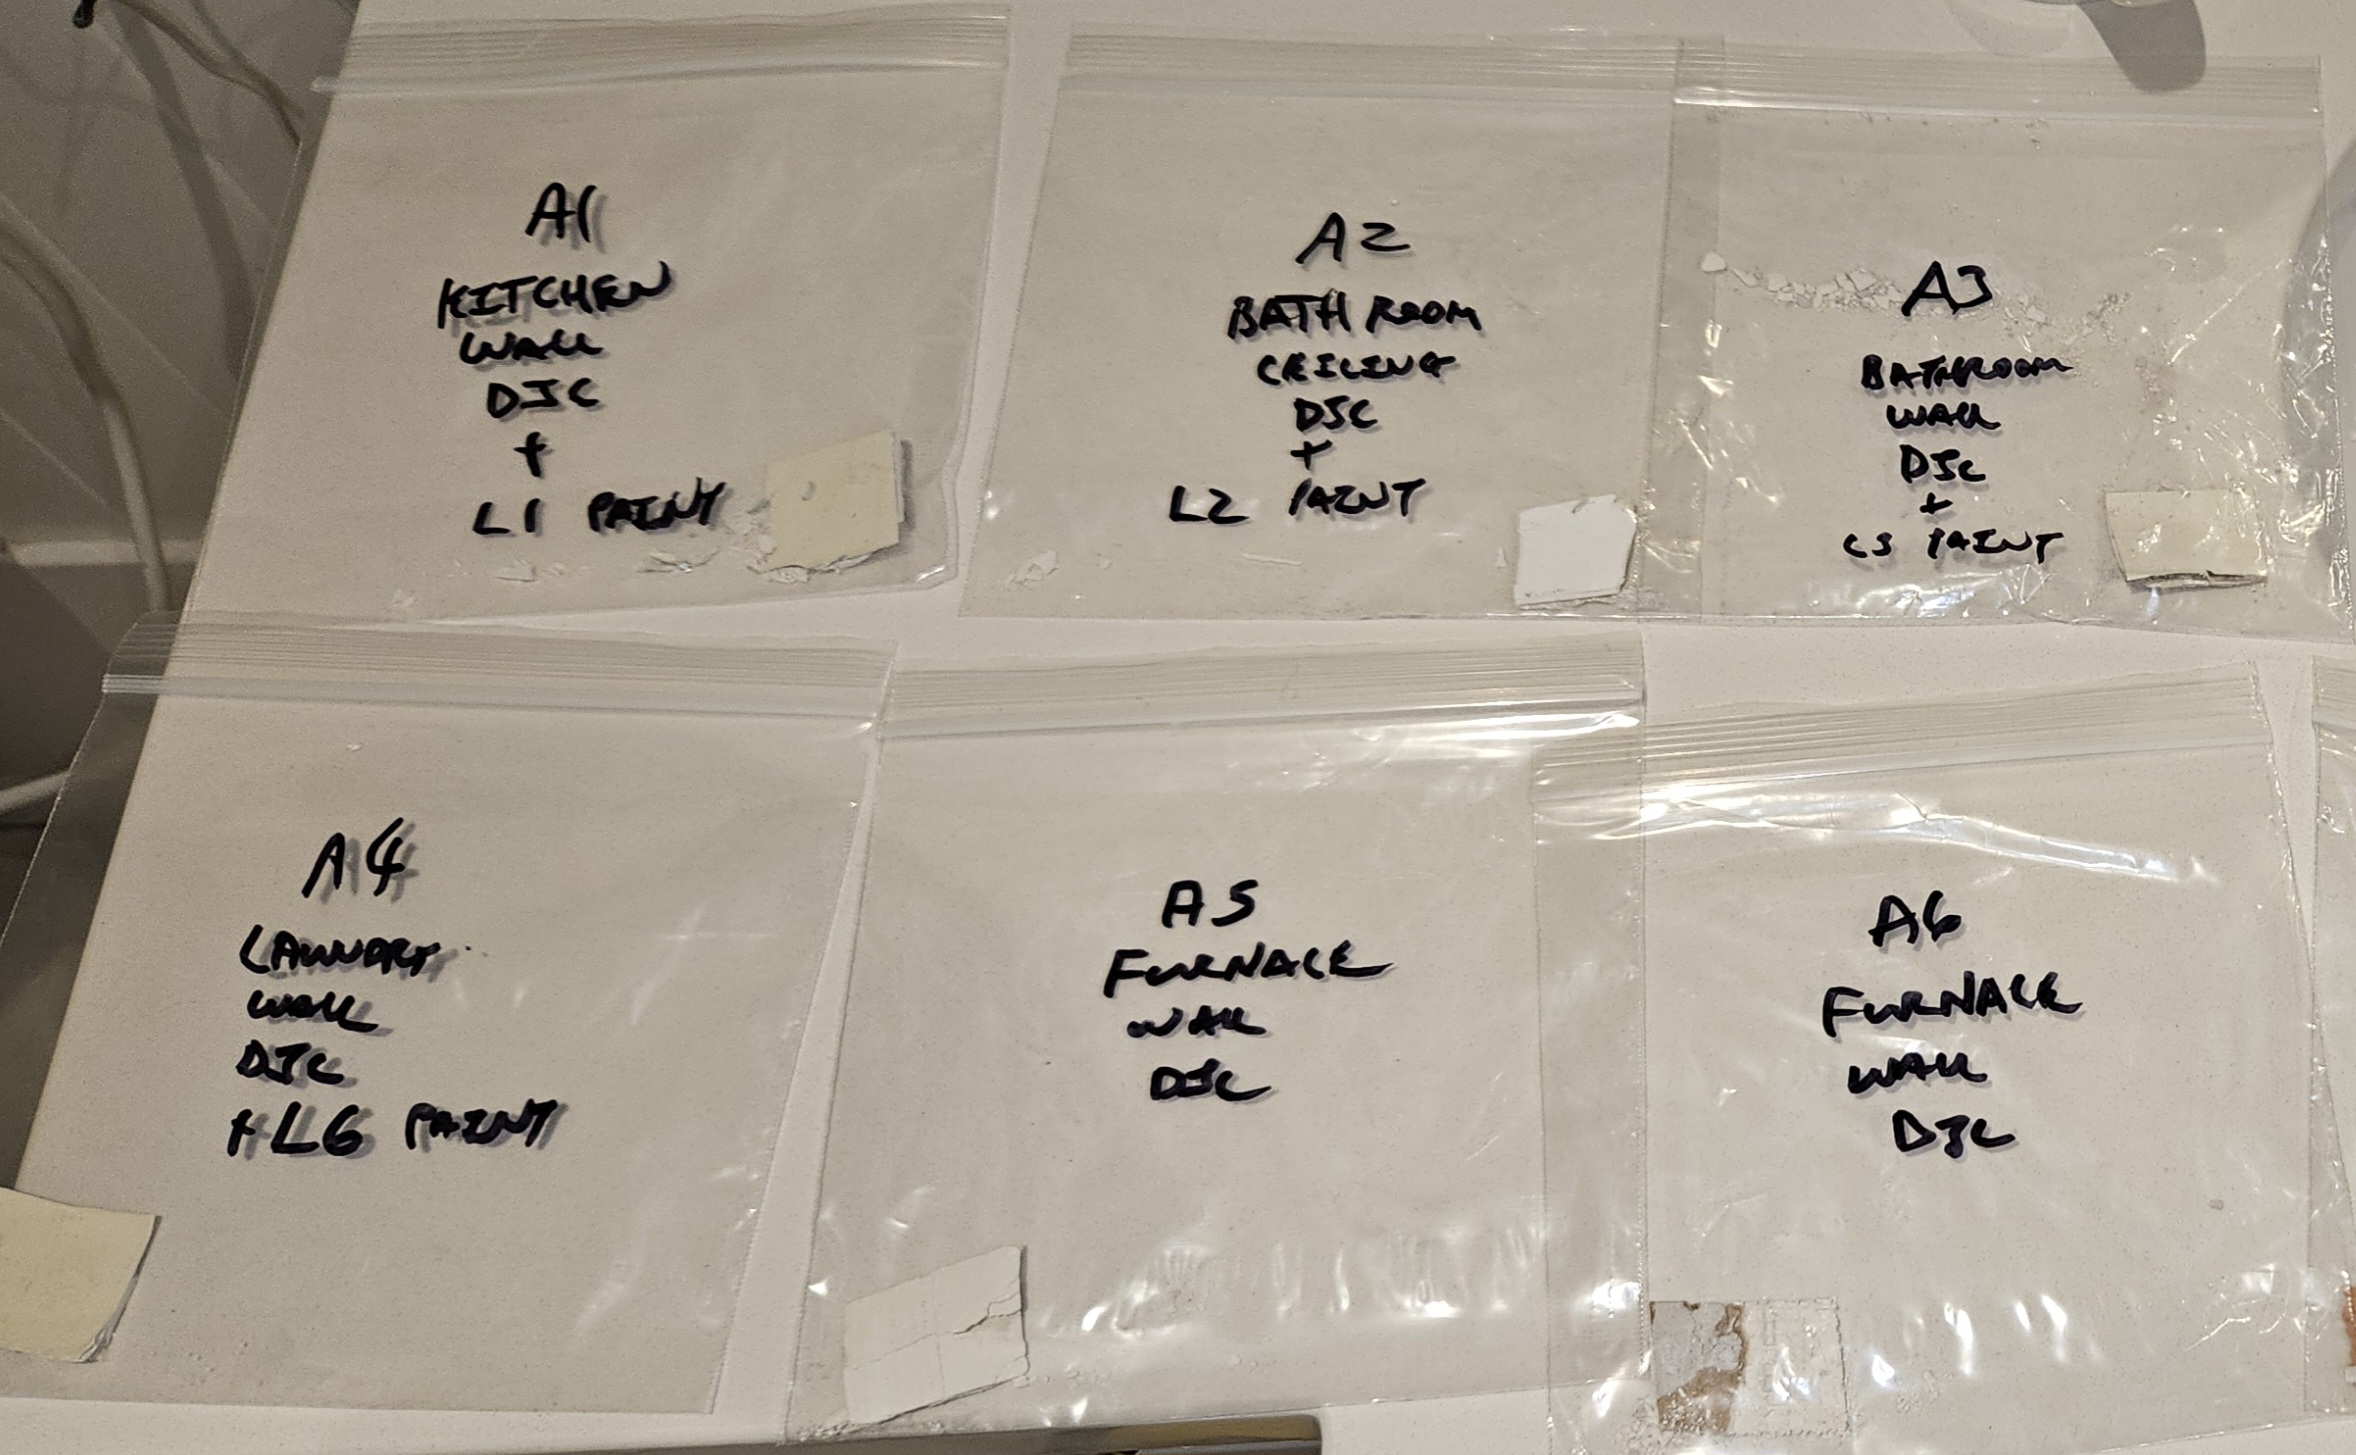 A1
KITCHEN
WALL
DJC
+
L1 PAINT
A2
BATHROOM
CEILING
DJC
+
L2 PAINT
A3
BATHROOM
WALL
DJC
+
L3 PAINT
A4
LAUNDRY
WALL
DJC
+ L6 PAINT
A5
FURNACE
WALL
DJC
A6
FURNACE
WALL
DJC